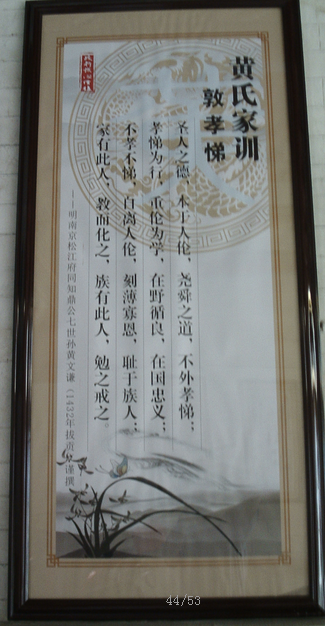 黄氏家训
敦孝悌
圣人之德，本于人伦，尧舜之道，不外孝悌；
孝悌为行，重伦为学，在野循良，在国忠义；
不孝不悌，自离人伦，刻薄寡恩，耻于族人；
家有此人，教而化之，族有此人，勉之戒之。
——明南京松江府同知鼎公七世孙黄文谦（1432年拔贡）谨撰
44/53